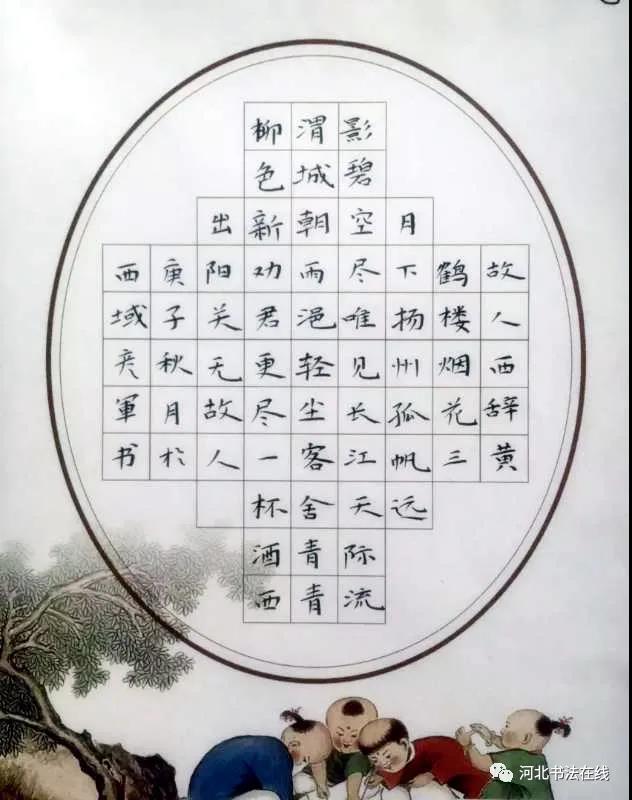 故人西辞黄
鹤楼烟花三
月下扬州孤帆远
影碧空尽唯见长江天际流
渭城朝雨浥轻尘客舍青青
柳色新劝君更尽一杯酒西
出阳关无故人
庚子秋月於
西域彦軍书
河北书法在线